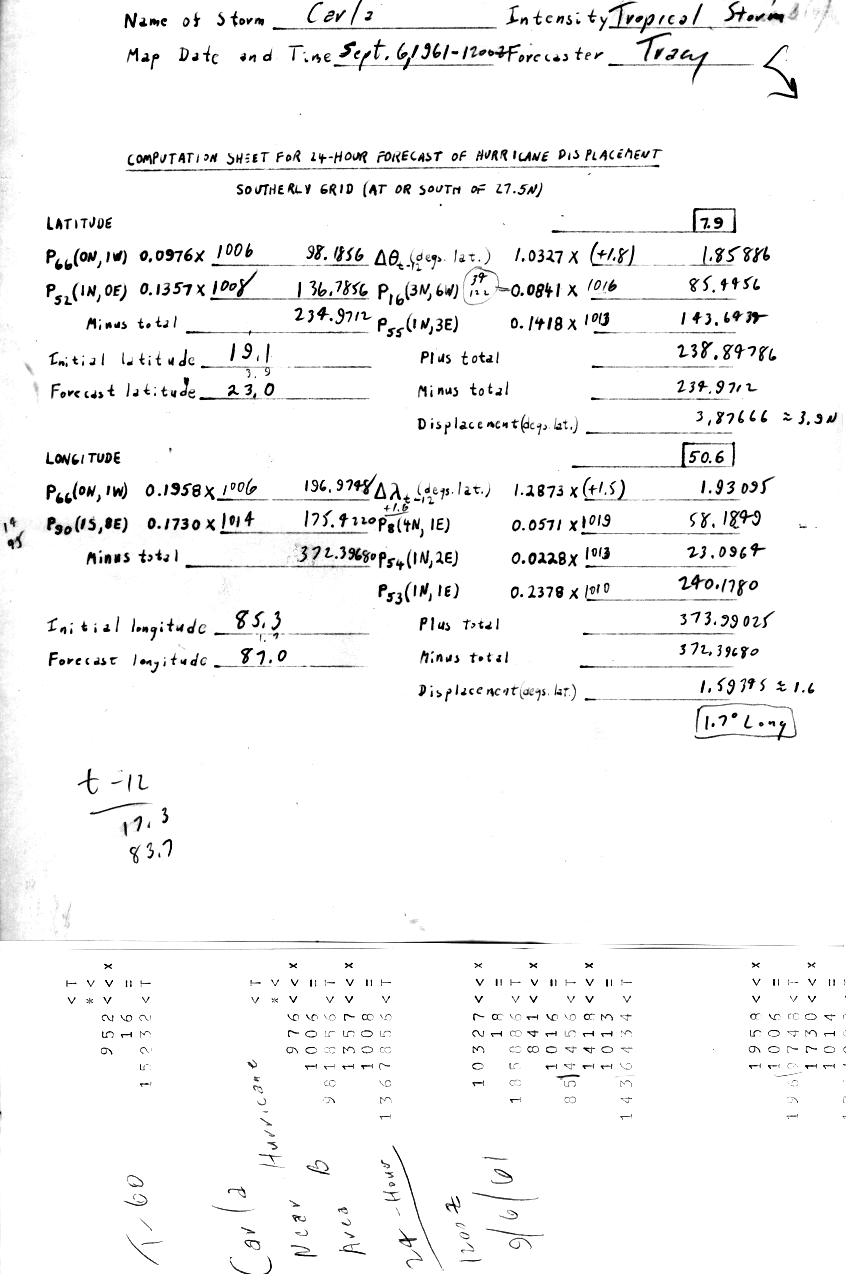 Name of Storm Carla Intensity Tropical Storm
Map Date and Time Sept. 6, 1961-1200Z Forecaster Tracy
COMPUTATION SHEET FOR 24-HOUR FORECAST OF HURRICANE DISPLACEMENT
SOUTHERLY GRID (AT OR SOUTH OF 27.5N)
LATITUDE 7.9
P66(0N, 1W) 0.0976 X 1006 98.1856 Δθt-12 (degs. lat.) 1.0327 X (+1.8) 1.85886
P52(1N, 0E) 0.1357 X 1008 136.7856 P16(3N, 6W) 0.0841 X 1016 85.4456
Minus total 234.9712 P55(1N, 3E) 0.1418 X 1013 143.6434
Initial latitude 19.1 Plus total 238.84786
3.9
Forecast latitude 23.0 Minus total 234.9712
Displacement (degs. lat.) 3.87666 ≈ 3.9 N
LONGITUDE 50.6
P66(0N, 1W) 0.1958 X 1006 196.9748 Δλt-12 (degs. lat.) 1.2873 X (+1.5) 1.93095
+1.6
P90(1S, 8E) 0.1730 X 1014 175.4220 P8(4N, 1E) 0.0571 X 1019 58.1849
Minus total 372.39680 P54(1N, 2E) 0.0228 X 1013 23.0964
P53(1N, 1E) 0.2378 X 1010 240.1780
Initial longitude 85.3 Plus Total 373.99025
1.7
Forecast longitude 87.0 Minus total 372.39680
Displacement (degs. lat.) 1.59345 ≈ 1.6
1.7° Long
t-12
17.3
83.7
< T
* <
952 < < X
16 =
15232 < T
< T
* <
976 < < X
1006 =
981856 < T
1357 < < X
1008 =
1367856 < T
10327 < < X
18 =
185886 < T
841 < < X
1016 =
854456 < T
1418 < < X
1013 =
1436434 < T
1958 < < X
1006 =
1969748 < T
1730 < < X
1014 =
Carla
Hurricane
Near B
Area
24-Hour
1200Z
9/6/61